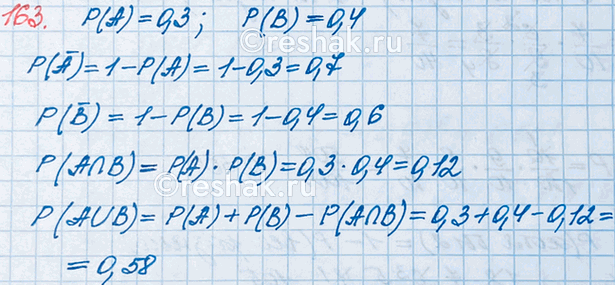 163. P(A)=0,3; P(B)=0,4
P(Ā)=1-P(A)=1-0,3=0,7
P(B̄)=1-P(B)=1-0,4=0,6
P(A∩B)=P(A)·P(B)=0,3·0,4=0,12
P(A∪B)=P(A)+P(B)-P(A∩B)=0,3+0,4-0,12=
=0,58
reshak.ru